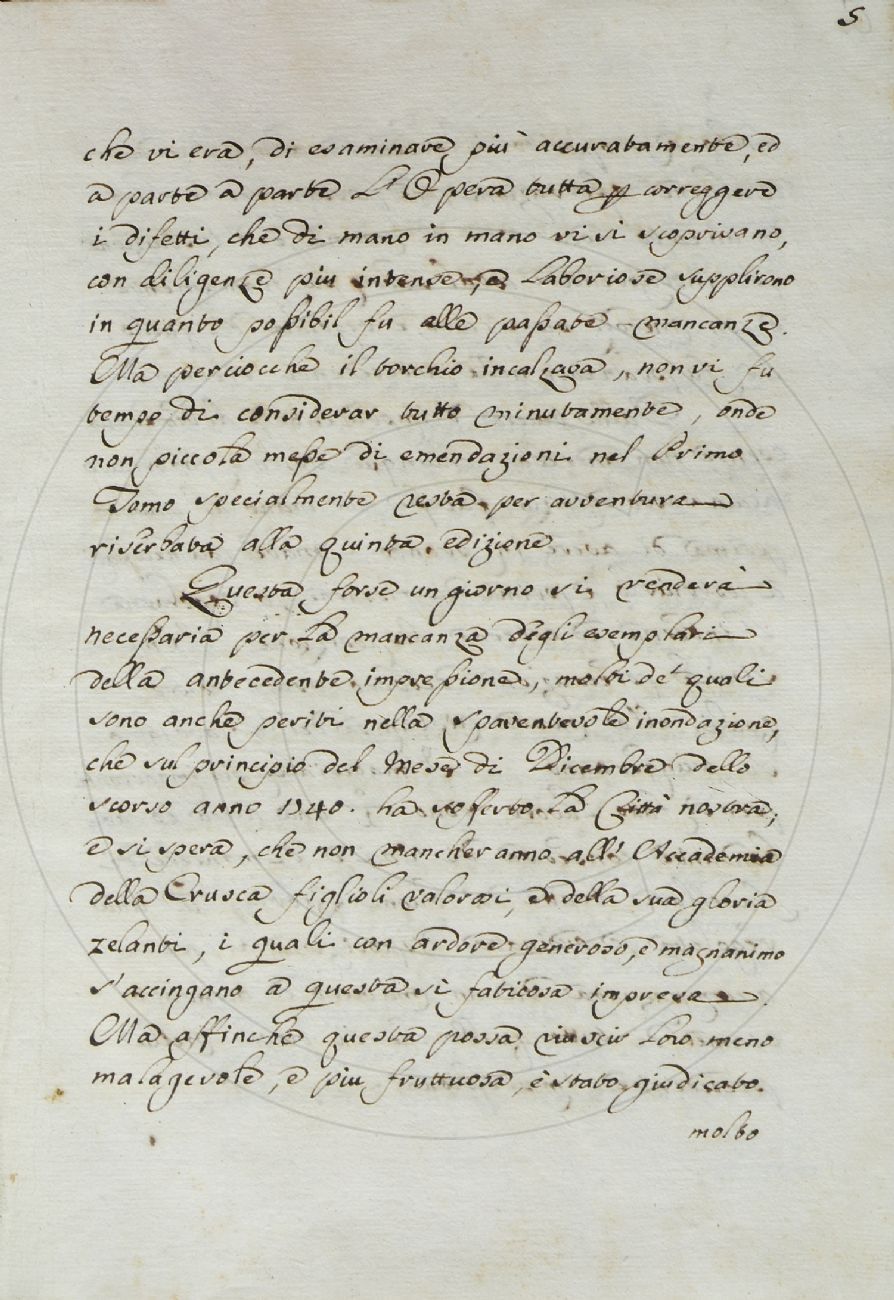 5
che vi era, di esaminare più accuratamente, ed
a parte a parte L'Opera tutta p correggere
i difetti, che di mano in mano vi si scoprivano,
con diligenze piu intense, e Laboriose supplirono
in quanto possibil fu alle passate mancanze.
Ma perciocche il torchio incalzava, non vi fu
tempo di considerar tutto minutamente, onde
non piccola messe di emendazioni nel Primo
Tomo specialmente resta per avventura
riserbata alla quinta edizione
Questa forse un giorno si renderà
necessaria per La mancanza degli esemplari
della antecedente impressione, molti de' quali
sono anche periti nella spaventevole inondazione,
che sul principio del Mese di Dicembre dello
scorso anno 1740. ha sofferto La Città nostra;
e si spera, che non mancheranno all' Accademia
della Crusca figlioli valorosi, e della sua gloria
zelanti, i quali con ardore generoso, e magnanimo
s'accingano a questa sì faticosa impresa
Ma affinche questa possa riuscir Loro meno
malagevole, e piu fruttuosa, è stato giudicato
molto